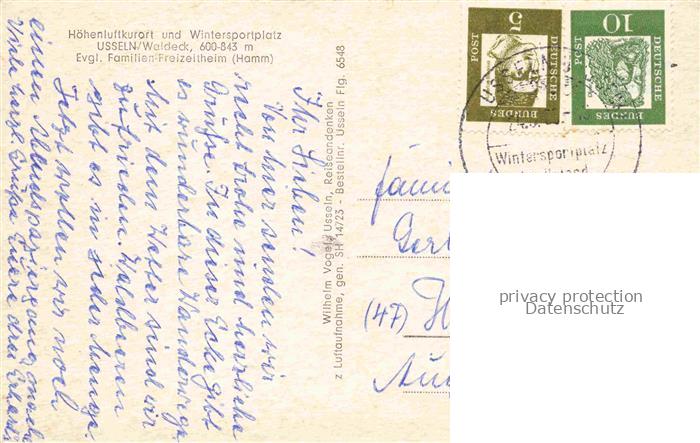 Höhenluftkurort und Wintersportplatz
USSELN/Waldeck, 600-843 m
Evgl. Familien-Freizeitheim (Hamm)
Ihr Lieben!
Von hier senden wir
recht frohe und herzliche
Grüße. In dieser Ecke gibt
es wunderbare Wanderwege.
Mit dem Wetter sind wir
zufrieden. Waldbeeren
gibt es in jeder Menge.
Jetzt wollen wir noch
einen Abendspaziergang machen
Viele herzl. Grüße Eure drei
Wilhelm Vogel, Usseln, Reiseandenken
z Luftaufnahme, gen. SH 14723 - Bestellnr. Usseln Flg. 6548
5
DEUTSCHE
BUNDES
POST
10
DEUTSCHE
BUNDES
POST
USSELN
Wintersportplatz
Fami
Ger
(47) H
Au
privacy protection
Datenschutz